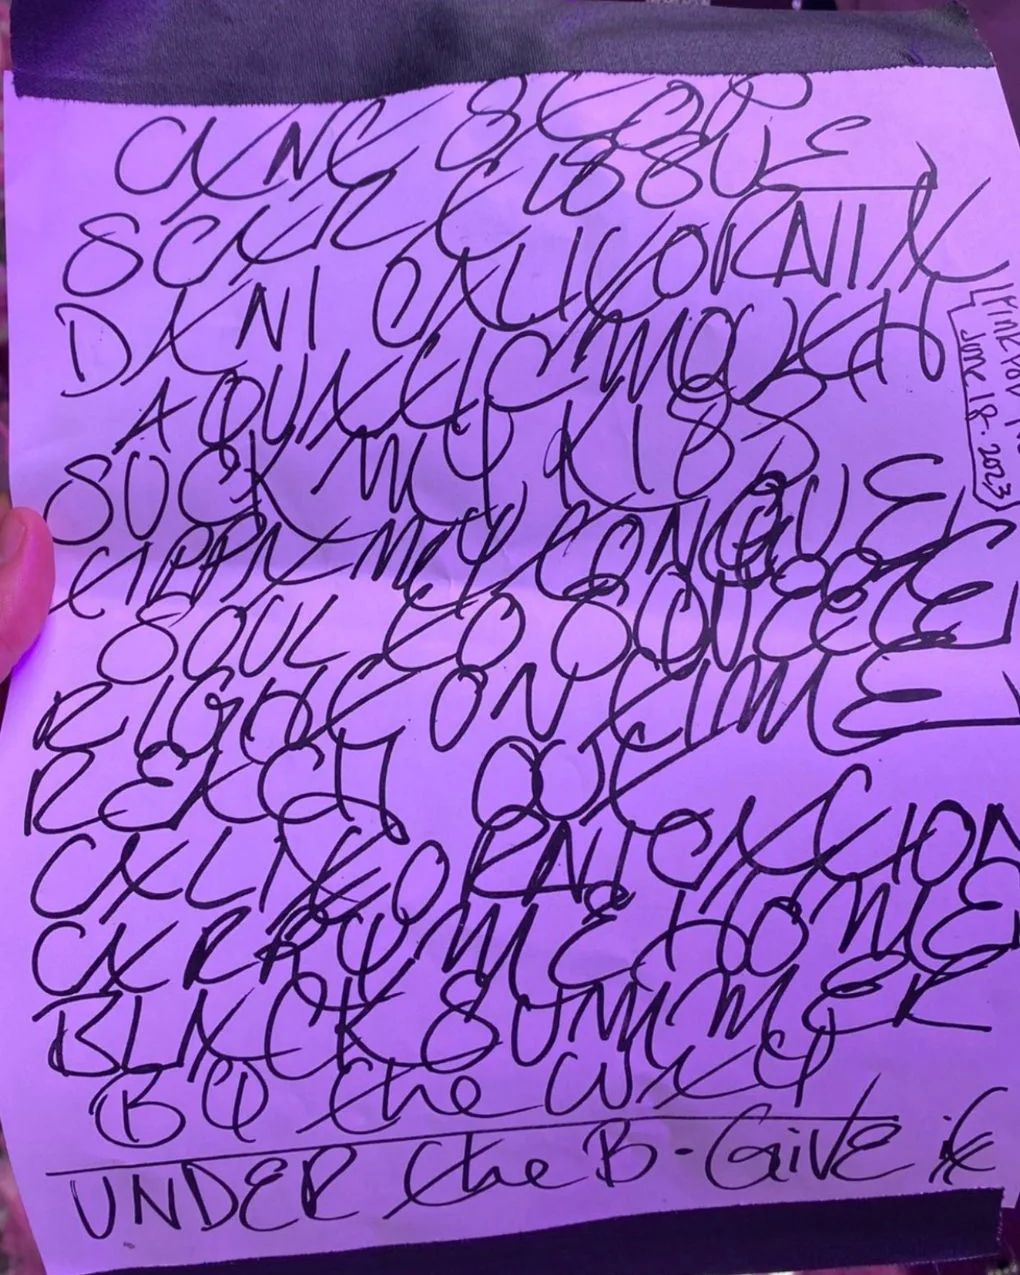 CAN'T STOP
SCAR TISSUE
DANI CALIFORNIA
AQUATIC MOUTH
SUCK MY KISS
TIPPA MY TONGUE
SOUL TO SQUEEZE
RIGHT ON TIME
REACH OUT
CALIFORNICATION
CARRY ME HOME
BLACK SUMMER
BY the WAY
UNDER the B - GiVE it
June 18. 2023